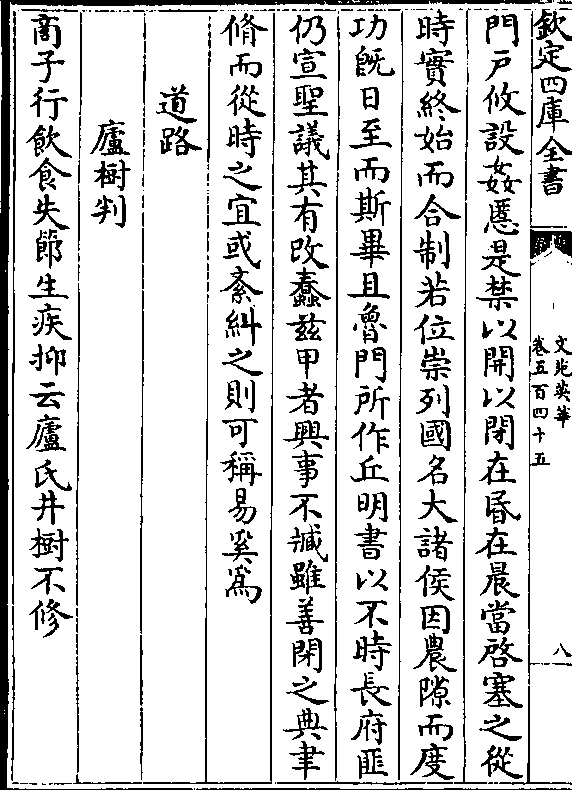 欽定四庫全書
文苑英華
卷五百四十五
八
門戸攸設姦慝是禁以開以閉在昏在晨當啓塞之從
時實終始而合制若位崇列國名大諸侯因農隙而度
功既日至而斯畢且魯門所作丘明書以不時長府匪
仍宣聖議其有改蠢兹甲者興事不臧雖善閉之典聿
脩而從時之宜或紊糾之則可稱易奚爲
道路
廬樹判
商子行飲食失節生疾抑云廬氏井樹不修